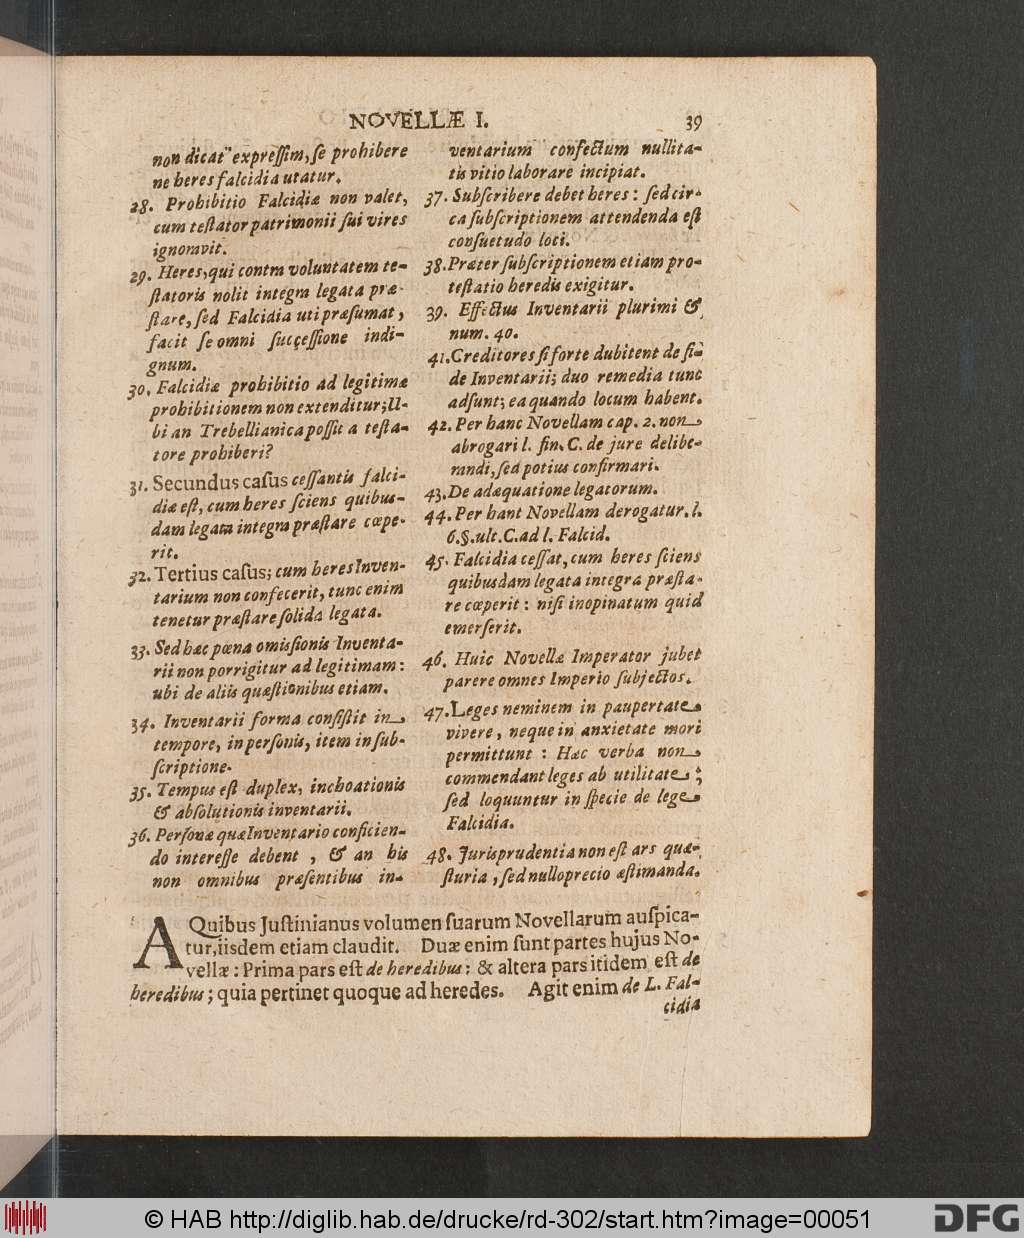 NOVELLÆ I. 39
non dicat expreſſim, ſe prohibere
ne heres falcidia utatur.
28. Prohibitio Falcidiæ non valet,
cum teſtator patrimonii ſui vires
ignoravit.
29. Heres, qui contra voluntatem te-
ſtatoris nolit integra legata præ-
ſtare, ſed Falcidia uti præſumat,
facit ſe omni ſucceſſione indi-
gnum.
30. Falcidiæ prohibitio ad legitimæ
prohibitionem non extenditur; U-
bi an Trebellianica poſſit a teſta-
tore prohiberi?
31. Secundus caſus ceſſantis falci-
diæ eſt, cum heres ſciens quibus-
dam legata integra præſtare cœpe-
rit.
32. Tertius caſus; cum heres Inven-
tarium non confecerit, tunc enim
tenetur præſtare ſolida legata.
33. Sed hæc pœna omiſſionis Inventa-
rii non porrigitur ad legitimam:
ubi de aliis quæſtionibus etiam.
34. Inventarii forma conſiſtit in
tempore, in perſonis, item in ſub-
ſcriptione.
35. Tempus eſt duplex, inchoationis
& abſolutionis inventarii.
36. Perſonæ quæ Inventario conficien-
do intereſſe debent, & an his
non omnibus præſentibus in-
ventarium confectum nullita-
tis vitio laborare incipiat.
37. Subſcribere debet heres: ſed cir-
ca ſubſcriptionem attendenda eſt
conſuetudo loci.
38. Præter ſubſcriptionem etiam pro-
teſtatio heredis exigitur.
39. Effectus Inventarii plurimi &
num. 40.
41. Creditores ſi forte dubitent de fi-
de Inventarii; duo remedia tunc
adſunt; ea quando locum habent.
42. Per hanc Novellam cap. 2. non
abrogari l. fin. C. de jure delibe-
randi, ſed potius confirmari.
43. De adæquatione legatorum.
44. Per hant Novellam derogatur. l.
6. §. ult. C. ad l. Falcid.
45. Falcidia ceſſat, cum heres ſciens
quibusdam legata integra præſta-
re cœperit: niſi inopinatum quid
emerſerit.
46. Huic Novellæ Imperator jubet
parere omnes Imperio ſubjectos.
47. Leges neminem in paupertate
vivere, neque in anxietate mori
permittunt: Hæc verba non
commendant leges ab utilitate;
ſed loquuntur in ſpecie de lege
Falcidia.
48. Jurisprudentia non eſt ars quæ-
ſturia, ſed nullo precio æſtimanda.
A Quibus Juſtinianus volumen ſuarum Novellarum auſpica-
tur, iisdem etiam claudit. Duæ enim ſunt partes hujus No-
vellæ: Prima pars eſt de heredibus: & altera pars itidem eſt de
heredibus; quia pertinet quoque ad heredes. Agit enim de L. Fal-
cidia
© HAB http://diglib.hab.de/drucke/rd-302/start.htm?image=00051
DFG